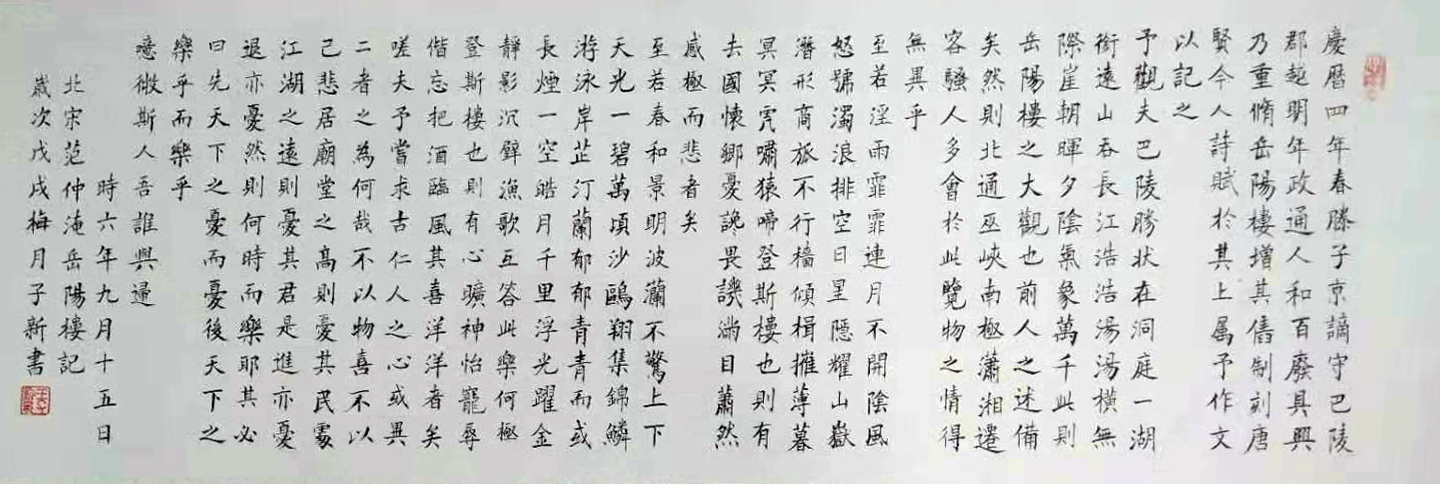 慶曆四年春滕子京謫守巴陵
郡越明年政通人和百廢具興
乃重脩岳陽樓增其舊制刻唐
賢今人詩賦於其上属予作文
以記之
予觀夫巴陵勝狀在洞庭一湖
銜遠山吞長江浩浩湯湯橫無
際崖朝暉夕陰氣象萬千此則
岳陽樓之大觀也前人之述備
矣然則北通巫峽南極瀟湘遷
客騷人多會於此覽物之情得
無異乎
至若淫雨霏霏連月不開陰風
怒號濁浪排空日星隱耀山嶽
潛形商旅不行檣傾楫摧薄暮
冥冥虎嘯猿啼登斯樓也則有
去國懷鄉憂讒畏譏滿目蕭然
感極而悲者矣
至若春和景明波瀾不驚上下
天光一碧萬頃沙鷗翔集錦鱗
游泳岸芷汀蘭郁郁青青而或
長煙一空皓月千里浮光躍金
靜影沉璧漁歌互答此樂何極
登斯樓也則有心曠神怡寵辱
偕忘把酒臨風其喜洋洋者矣
嗟夫予嘗求古仁人之心或異
二者之為何哉不以物喜不以
己悲居廟堂之高則憂其民處
江湖之遠則憂其君是進亦憂
退亦憂然則何時而樂耶其必
曰先天下之憂而憂後天下之
樂乎而樂乎
噫微斯人吾誰與歸
時六年九月十五日
北宋范仲淹岳陽樓記
歲次戊戌梅月子新書